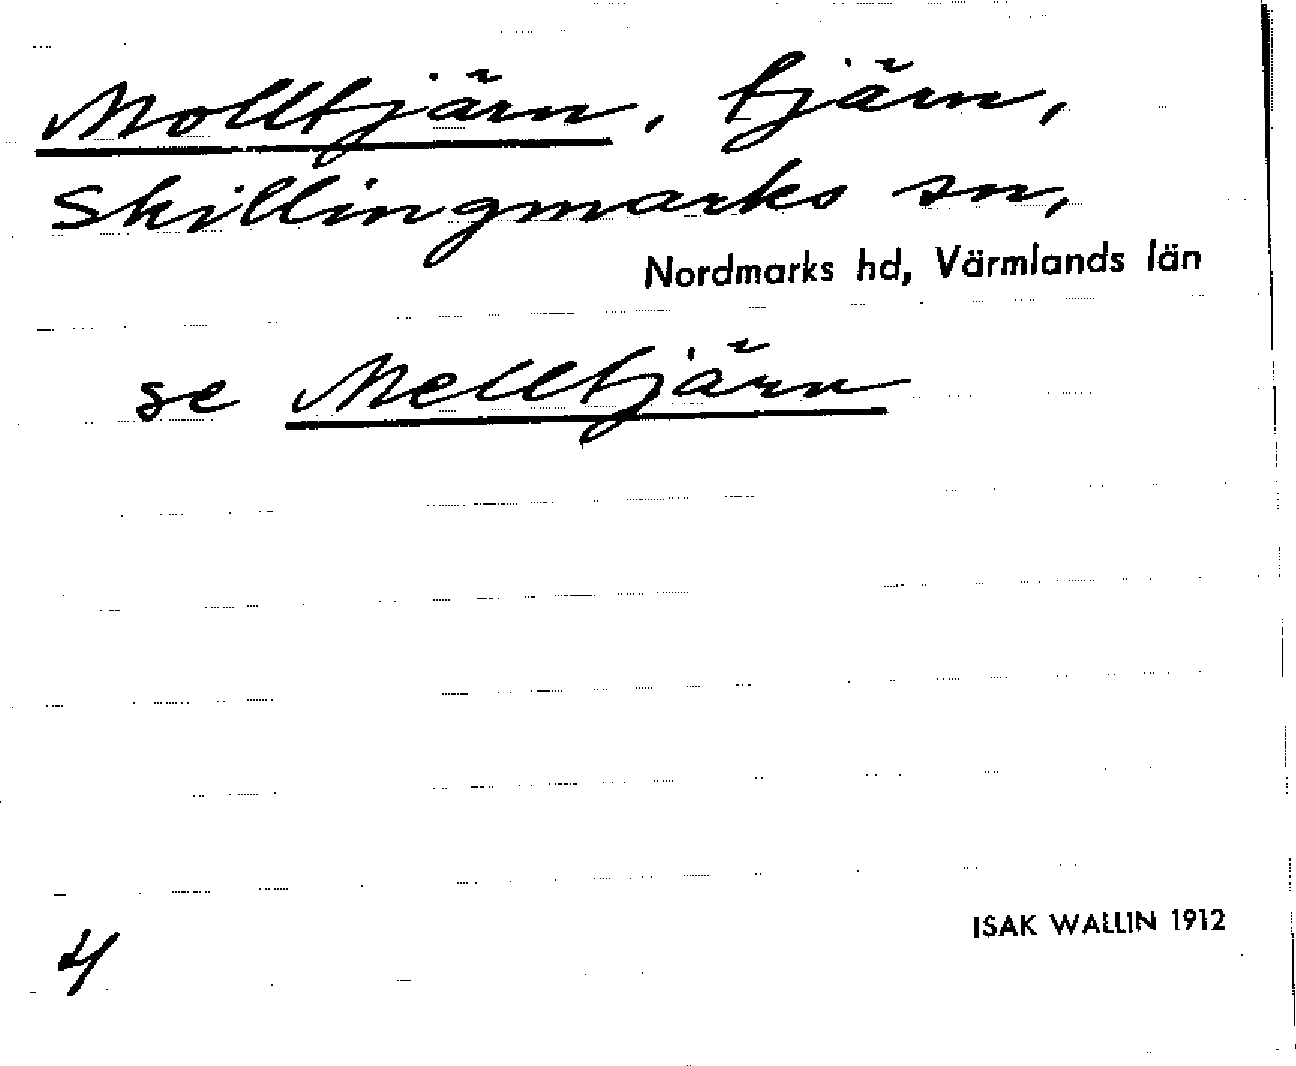 Molltjärn, tjärn,
Skillingmarks sn,
Nordmarks hd, Värmlands län
se Melltjärn
ISAK WALLIN 1912
4